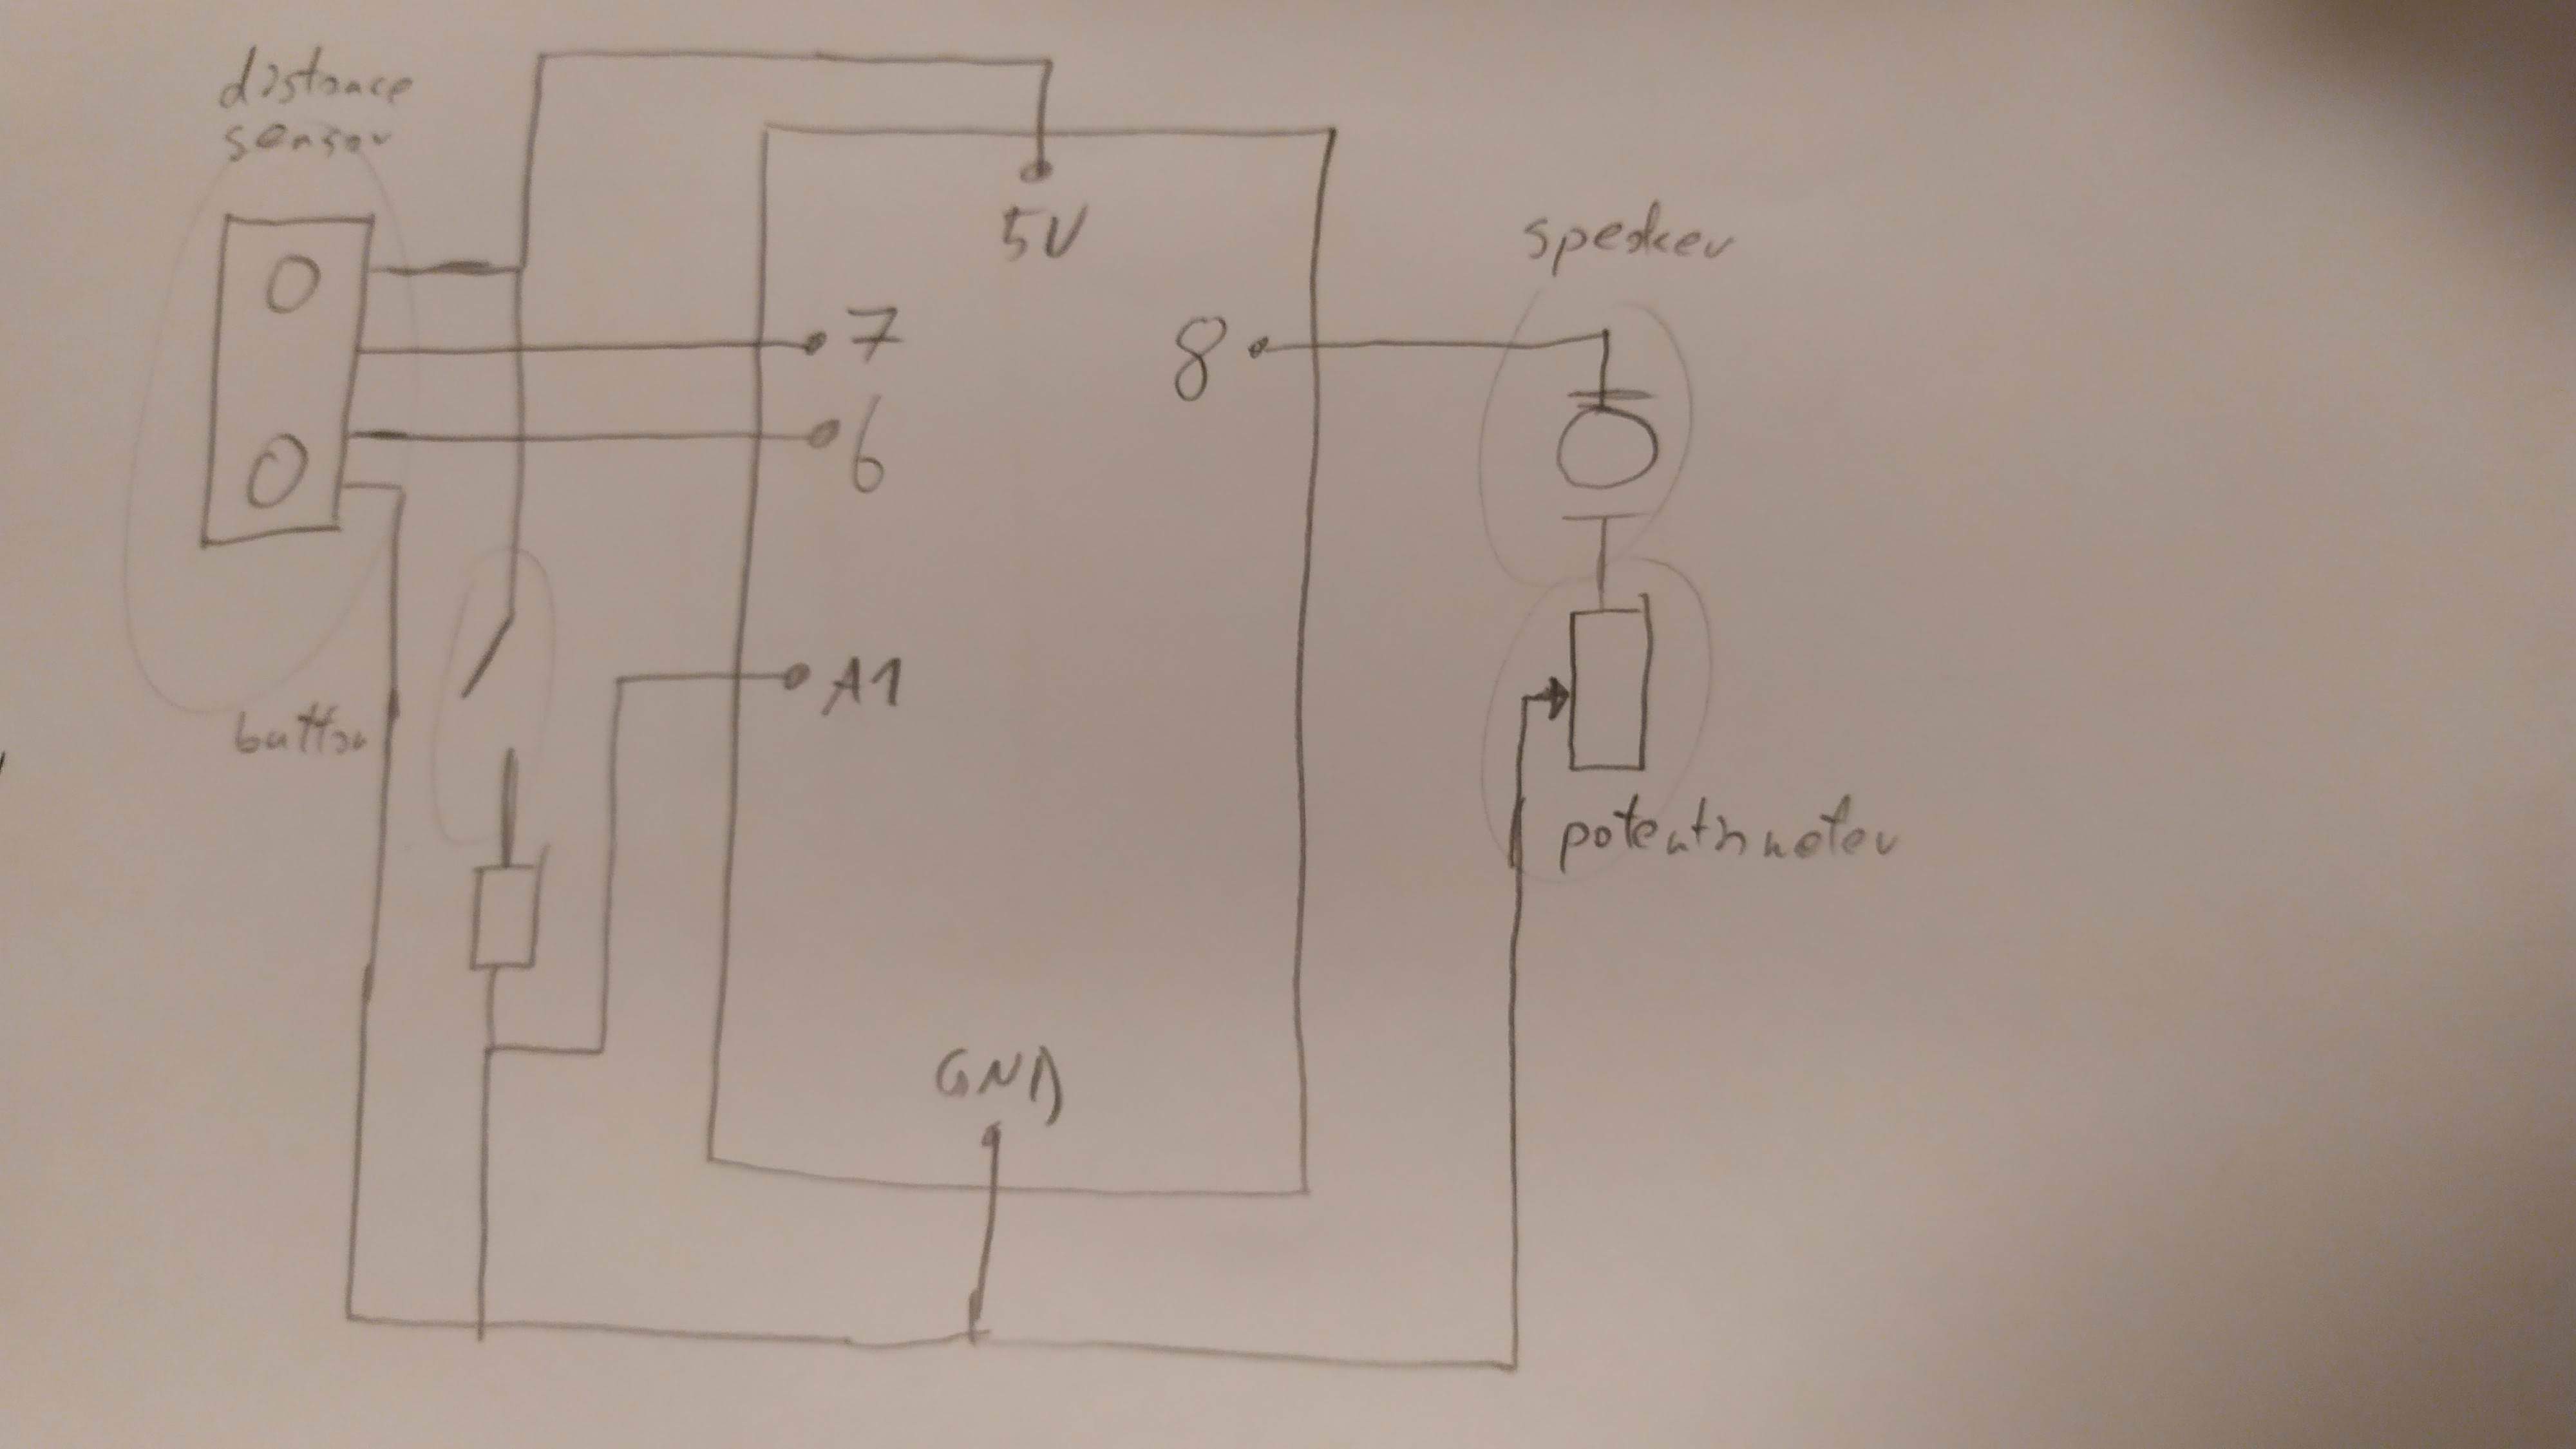 distance
sensor
5V
speaker
7
8
6
A1
button
potentiometer
GND